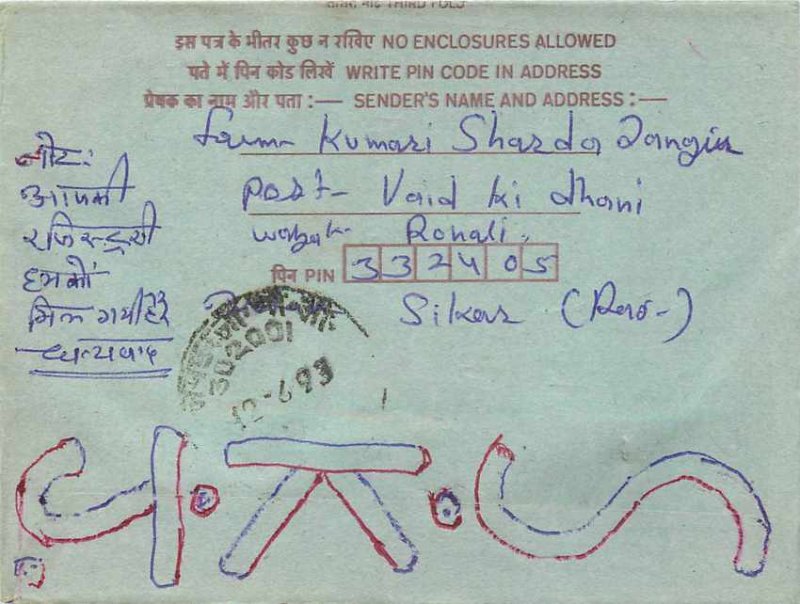 THIRD FOLD
इस पत्र के भीतर कुछ न रखिए NO ENCLOSURES ALLOWED
पते में पिन कोड लिखें WRITE PIN CODE IN ADDRESS
प्रेषक का नाम और पता :— SENDER'S NAME AND ADDRESS :—
From Kumari Sharda Jangir
Post- Vaid ki dhani
Ronali,
पिन PIN 332405
Sikar (Raj-)
नोट:
आपकी
रजिस्ट्री
हमको
मिल गयी है
धन्यवाद
302001
12-6-93